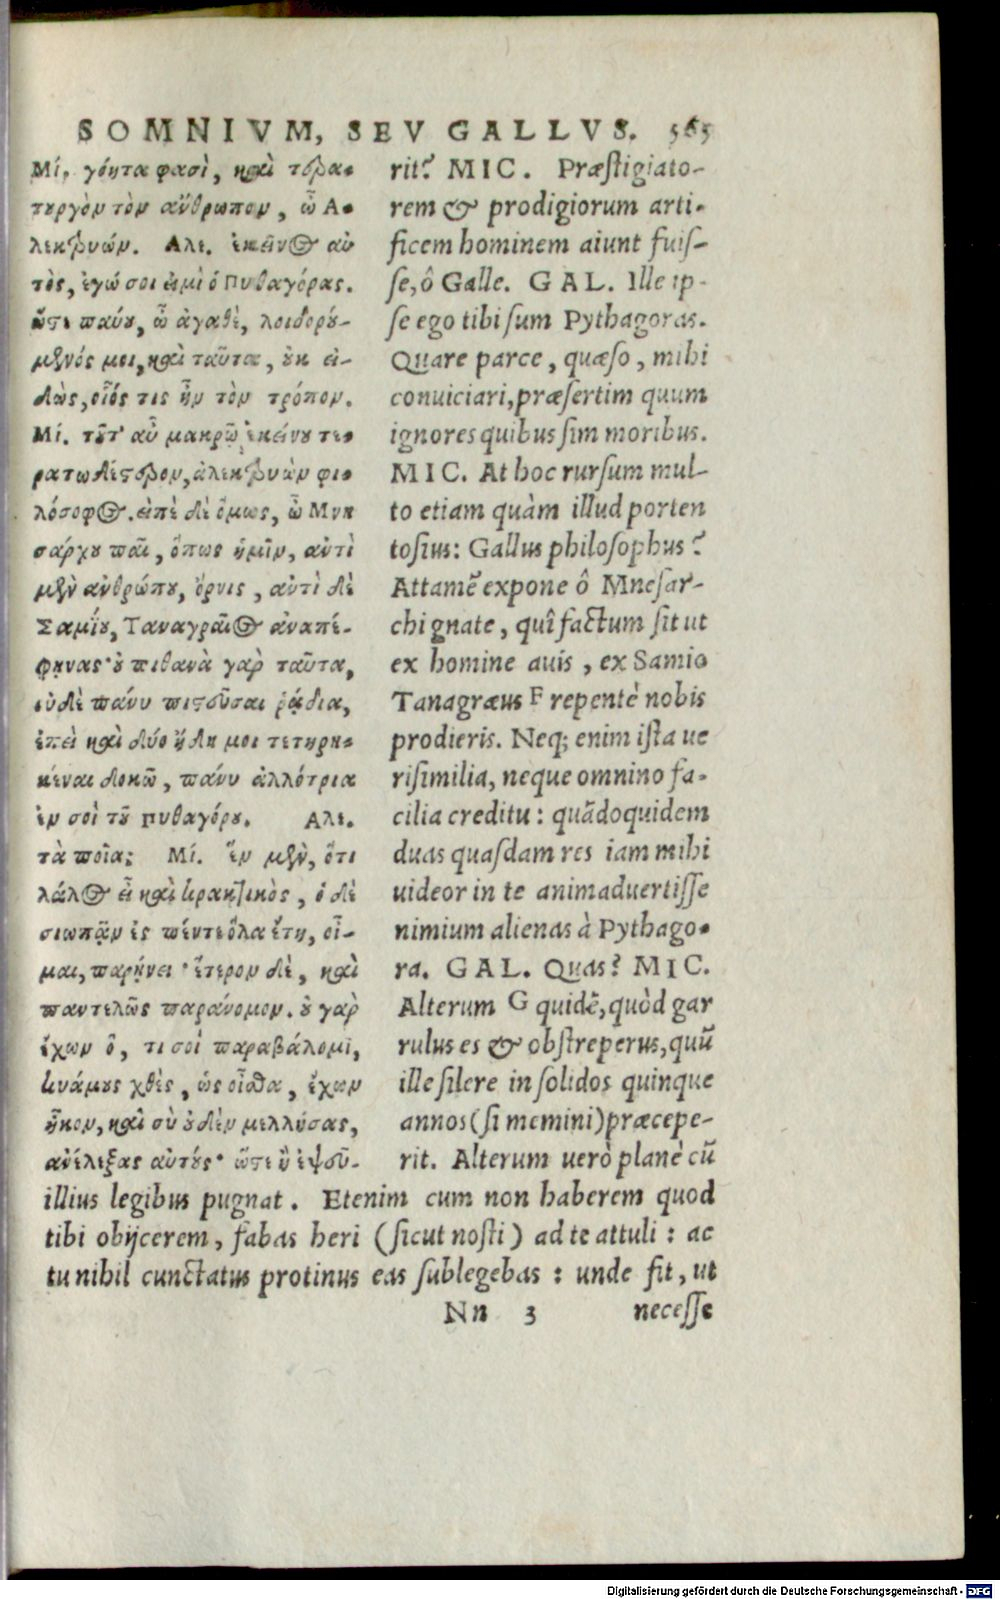 SOMNIVM, SEV GALLVS. 565
Μί. γόητα φασὶ, καὶ τερα-
τουργὸν τὸν ἄνθρωπον, ὦ Α-
λεκτρυών. Αλε. ἐκεῖνος αὐ
τὸς, ἐγώ σοι εἰμὶ ὁ Πυθαγόρας.
ὥστε παύου, ὦ ἀγαθὲ, λοιδορού-
μενός μοι, καὶ ταῦτα, οὐκ εἰ-
δὼς, οἷός τις ἦν τὸν τρόπον.
Μί. τοῦτ' αὖ μακρῷ ἐκείνου τε-
ρατωδέστερον, ἀλεκτρυὼν φι-
λόσοφος. εἰπὲ δὲ ὅμως, ὦ Μνη
σάρχου παῖ, ὅπως ἡμῖν, αὐτὶ
μὲν ἀνθρώπου, ὄρνις, αὐτὶ δὲ
Σαμίου, Ταναγραῖος ἀναπέ-
φηνας· οὐ πιθανὰ γὰρ ταῦτα,
οὐδὲ πάνυ πιστεῦσαι ῥᾴδια,
ἐπεὶ καὶ δύο ἤδη μοι τετηρη-
κέναι δοκῶ, πάνυ ἀλλότρια
ἐν σοὶ τοῦ Πυθαγόρου. Αλε.
τὰ ποῖα; Μί. ἓν μὲν, ὅτι
λάλος εἶ καὶ κρακτικὸς, ὁ δὲ
σιωπᾷν ἐς πέντε ὅλα ἔτη, οἶ-
μαι, παρῄνει· ἕτερον δὲ, καὶ
παντελῶς παράνομον. οὐ γὰρ
ἔχων ὅ, τι σοὶ παραβάλοιμι,
κυάμους χθὲς, ὡς οἶσθα, ἔχων
ἧκον, καὶ σὺ οὐδὲν μελλήσας,
ἀνέλεξας αὐτούς· ὥστε ἢ ἐψεῦ-
rit? MIC. Præstigiato-
rem & prodigiorum arti-
ficem hominem aiunt fuis-
se, ô Galle. GAL. Ille ip-
se ego tibi sum Pythagoras.
Quare parce, quæso, mihi
conuiciari, præsertim quum
ignores quibus sim moribus.
MIC. At hoc rursum mul-
to etiam quàm illud porten
tosius: Gallus philosophus?
Attamē expone ô Mnesar-
chi gnate, quî factum sit ut
ex homine auis, ex Samio
Tanagræus F repentè nobis
prodieris. Neq; enim ista ue
risimilia, neque omnino fa-
cilia creditu: quādoquidem
duas quasdam res iam mihi
uideor in te animaduertisse
nimium alienas à Pythago-
ra. GAL. Quas? MIC.
Alterum G quidē, quòd gar
rulus es & obstreperus, quū
ille silere in solidos quinque
annos (si memini) præcepe-
rit. Alterum uerò planè cū
illius legibus pugnat. Etenim cum non haberem quod
tibi obijcerem, fabas heri (sicut nosti) ad te attuli: ac
tu nihil cunctatus protinus eas sublegebas: unde fit, ut
Nn 3 necesse
Digitalisierung gefördert durch die Deutsche Forschungsgemeinschaft - DFG